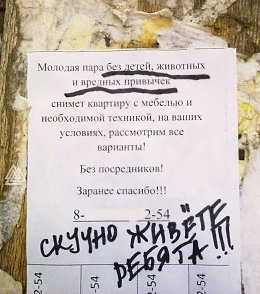 Молодая пара без детей, животных
и вредных привычек
снимет квартиру с мебелью и
необходимой техникой, на ваших
условиях, рассмотрим все
варианты!
Без посредников!
Заранее спасибо!!!
8- 2-54
СКУЧНО ЖИВЁТЕ
РЕБЯТА!!!
2-54
2-54
2-54
2-54